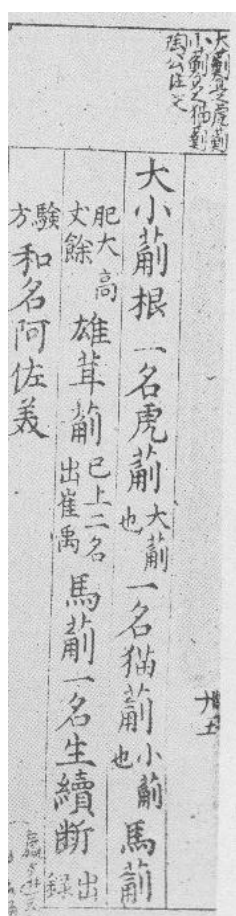 大薊是虎薊
小薊是猫薊
陶公注文
大小薊根一名虎薊大薊也一名猫薊小薊也馬薊
肥大高丈餘雄茸薊已上二名出崔禹馬薊一名生續断出
驗方和名阿佐美
十五